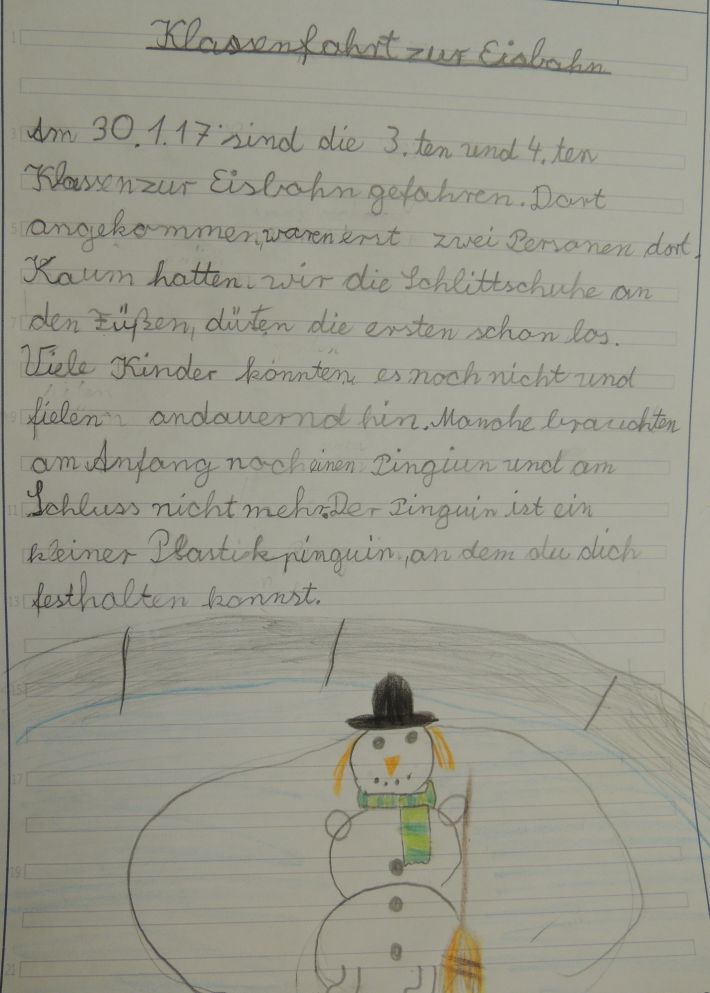 Klassenfahrt zur Eisbahn
Am 30.1.17 sind die 3.ten und 4.ten
Klassen zur Eisbahn gefahren. Dort
angekommen, waren erst zwei Personen dort.
Kaum hatten wir die Schlittschuhe an
den Füßen, düsten die ersten schon los.
Viele Kinder konnten es noch nicht und
fielen andauernd hin. Manche brauchten
am Anfang noch einen Pingiun und am
Schluss nicht mehr. Der Pinguin ist ein
kleiner Plastikpinguin, an dem du dich
festhalten kannst.